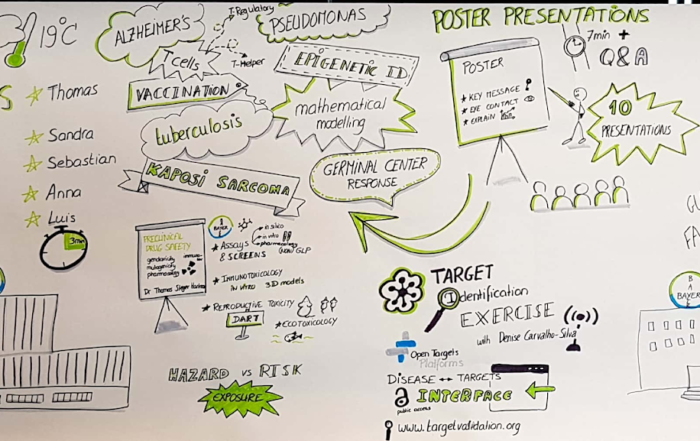 19°C
S
Thomas
Sandra
Sebastian
Anna
Luis
3min
ALZHEIMER'S
T-Regulatory
PSEUDOMONAS
T cells
T-Helper
EPIGENETIC ID
VACCINATION
mathematical
modelling
tuberculosis
KAPOSI SARCOMA
GERMINAL CENTER
RESPONSE
POSTER PRESENTATIONS
7min +
Q&A
POSTER
KEY MESSAGE
EYE CONTACT
EXPLAIN
10
PRESENTATIONS
PRECLINICAL
DRUG SAFETY
genotoxicity
mutagenicity
pharmacology
Dr Thomas Steger
BAYER
ASSAYS
& SCREENS
in silico
in vitro
pharmacology
non GLP
IMMUNOTOXICOLOGY
IN VITRO 3D models
REPRODUCTIVE TOXICITY
DART
ECOTOXICOLOGY
HAZARD vs RISK
EXPOSURE
TARGET
Identification
EXERCISE
with Denise Carvalho-Silva
Open Targets
Platforms
DISEASE ↔ TARGETS
a INTERFACE
public access
www.targetvalidation.org
FA
BAYER